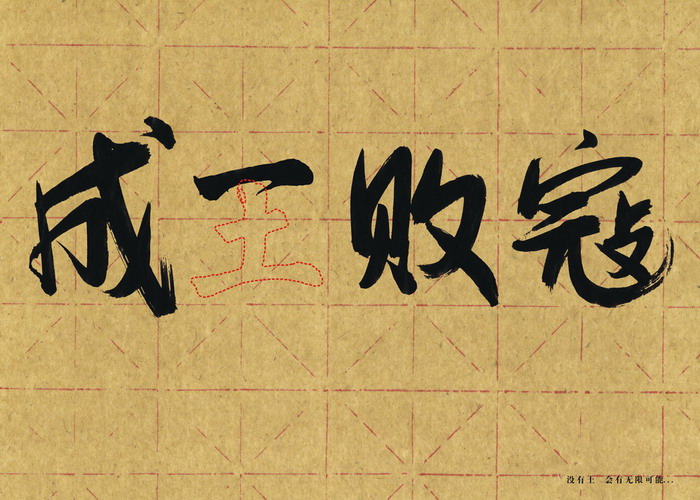 成王败寇
没有王 会有无限可能...